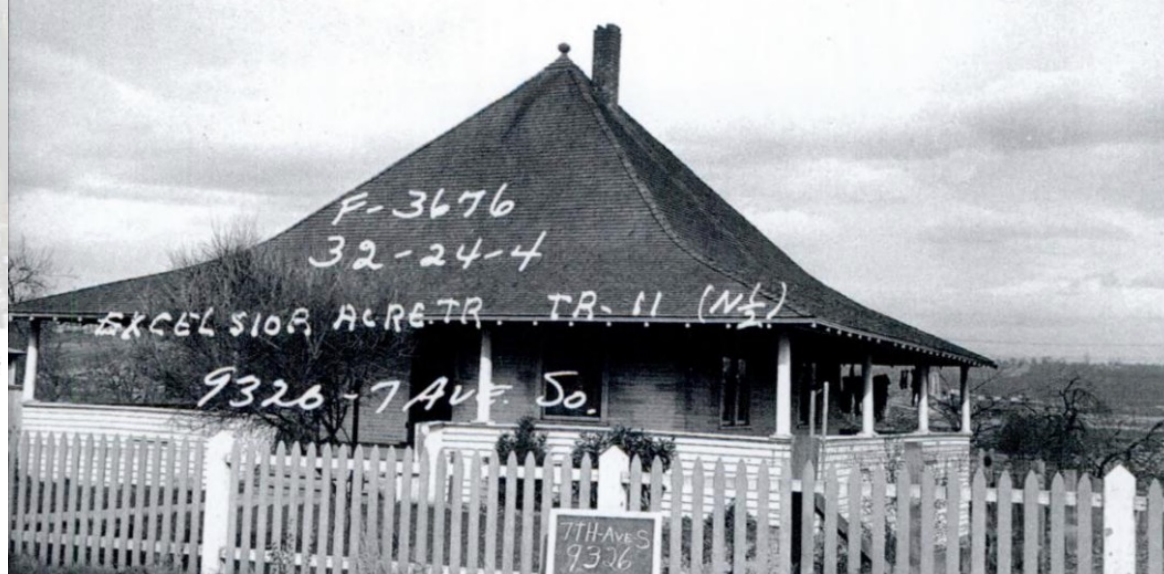 F-3676
32-24-4
EXCELSIOR ACRE TR TR-11 (N½)
9326-7 AVE. So.
7TH-AVE S
9326